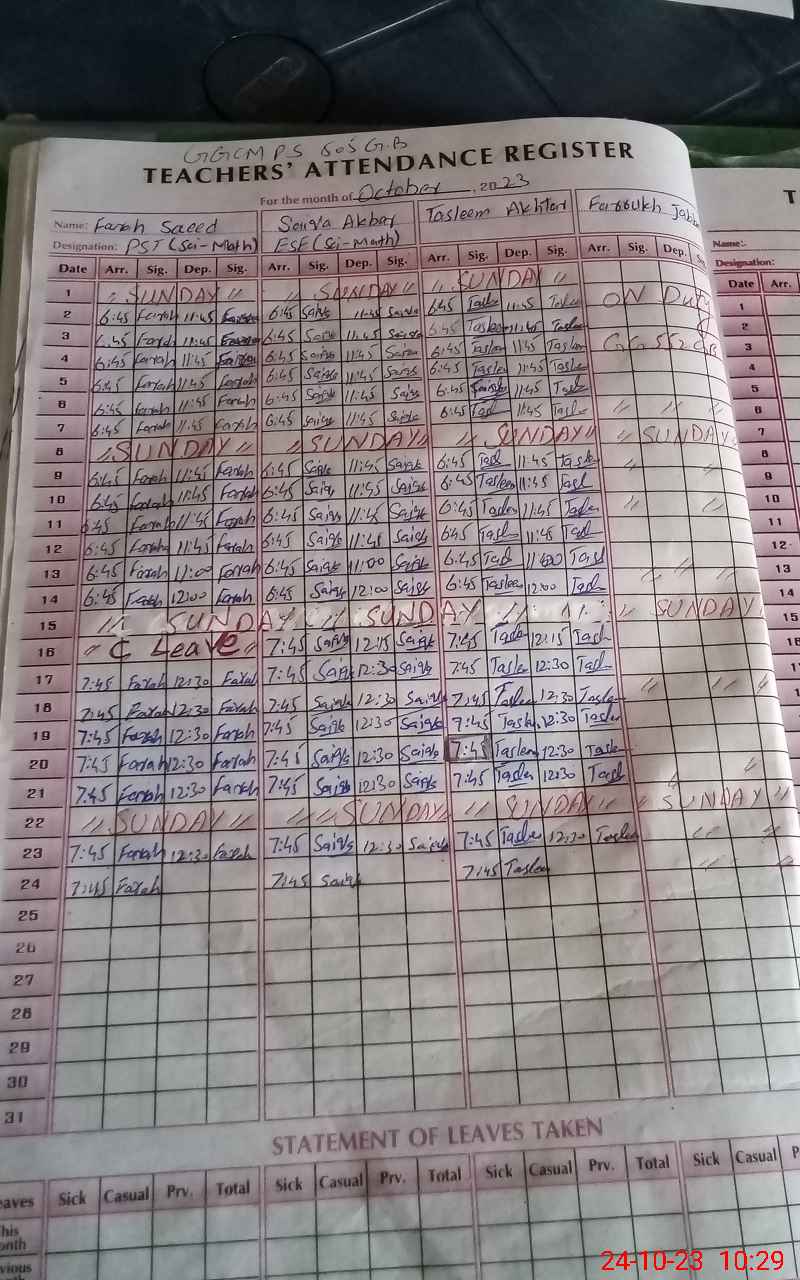 GGCMPS 605 G.B
TEACHERS' ATTENDANCE REGISTER
For the month of October, 2023
Name: Farah Saeed Saiqa Akbar Tasleem Akhtar Farroukh Jabb
Name:
Designation: PST (Sci-Math) ESE (Sci-Math)
Designation:
Date Arr. Sig. Dep. Sig. Arr. Sig. Dep. Sig. Arr. Sig. Dep. Sig. Arr. Sig. Dep. Date Arr.
1 " SUNDAY " " SUNDAY " " SUNDAY " 1
2 6:45 Farah 11:45 Farah 6:45 Saiqa 11:45 Saiqa 6:45 Tasle 11:45 Tasle ON Duty 2
3 6:45 Farah 11:45 Farah 6:45 Saiqa 11:45 Saiqa 6:45 Tasleem 11:45 Tasle 3
4 6:45 Farrah 11:45 Farrah 6:45 Saiqa 11:45 Saiqa 6:45 Taslem 11:45 Tasle 4
5 6:45 Farrah 11:45 Farrah 6:45 Saiqa 11:45 Saiqa 6:45 Tasle 11:45 Tasle 5
6 6:45 Farrah 11:45 Farrah 6:45 Saiqa 11:45 Saiqa 6:45 11:45 Tasl 6
7 6:45 Farrah 11:45 Farrah 6:45 Saiqa 11:45 Saiqa 6:45 Tasl 11:45 Tasl " " " 7
8 " SUNDAY " " SUNDAY " " SUNDAY " " SUNDAY 8
9 6:45 Farah 11:45 Farah 6:45 Saiqa 11:45 Saiqa 6:45 Tasl 11:45 Tasle " " 9
10 6:45 Farrah 11:45 Farrah 6:45 Saiqa 11:45 Saiqa 6:45 Tasleem 11:45 Tasl 10
11 6:45 Farrah 11:45 Farrah 6:45 Saiqa 11:45 Saiqa 6:45 Taslem 11:45 Tasle " " 11
12 6:45 Farrah 11:45 Farrah 6:45 Saiqa 11:45 Saiqa 6:45 Tasl 11:45 Tasl 12
13 6:45 Farrah 11:00 Farrah 6:45 Saiqa 11:00 Saiqa 6:45 Tasl 11:00 Tasl " " " 13
14 6:45 Farah 12:00 Farah 6:45 Saiqa 12:00 Saiqa 6:45 Tasleem 12:00 Tasl 14
15 " SUNDAY " SUNDAY " " SUNDAY 15
16 " C Leave " 7:45 Saiqa 12:15 Saiqa 7:45 Tasle 12:15 Tasl 16
17 7:45 Farah 12:30 Farah 7:45 Saiqa 12:30 Saiqa 7:45 Taslem 12:30 Tasl " " " 17
18 7:45 Farah 12:30 Farrah 7:45 Saiqa 12:30 Saiqa 7:45 Taslem 12:30 Taslem 18
19 7:45 Farrah 12:30 Farrah 7:45 Saiqa 12:30 Saiqa 7:45 Taslem 12:30 Taslem 19
20 7:45 Farrah 12:30 Farrah 7:45 Saiqa 12:30 Saiqa 7:45 Taslem 12:30 Taslem
21 7:45 Farrah 12:30 Farrah 7:45 Saiqa 12:30 Saiqa 7:45 Taslem 12:30 Tasl
22 " SUNDAY " " SUNDAY " SUNDAY " " SUNDAY "
23 7:45 Farrah 12:30 Farah 7:45 Saiqa 12:30 Saiqa 7:45 Taslem 12:30 Taslem " "
24 7:45 Farah 7:45 Saiqa 7:45 Taslem " "
25
26
27
28
29
30
31
STATEMENT OF LEAVES TAKEN
eaves Sick Casual Prv. Total Sick Casual Prv. Total Sick Casual Prv. Total Sick Casual
This
onth
vious
24-10-23 10:29